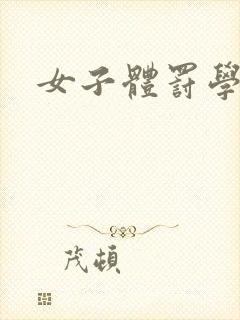 女子體罰學
茂頓